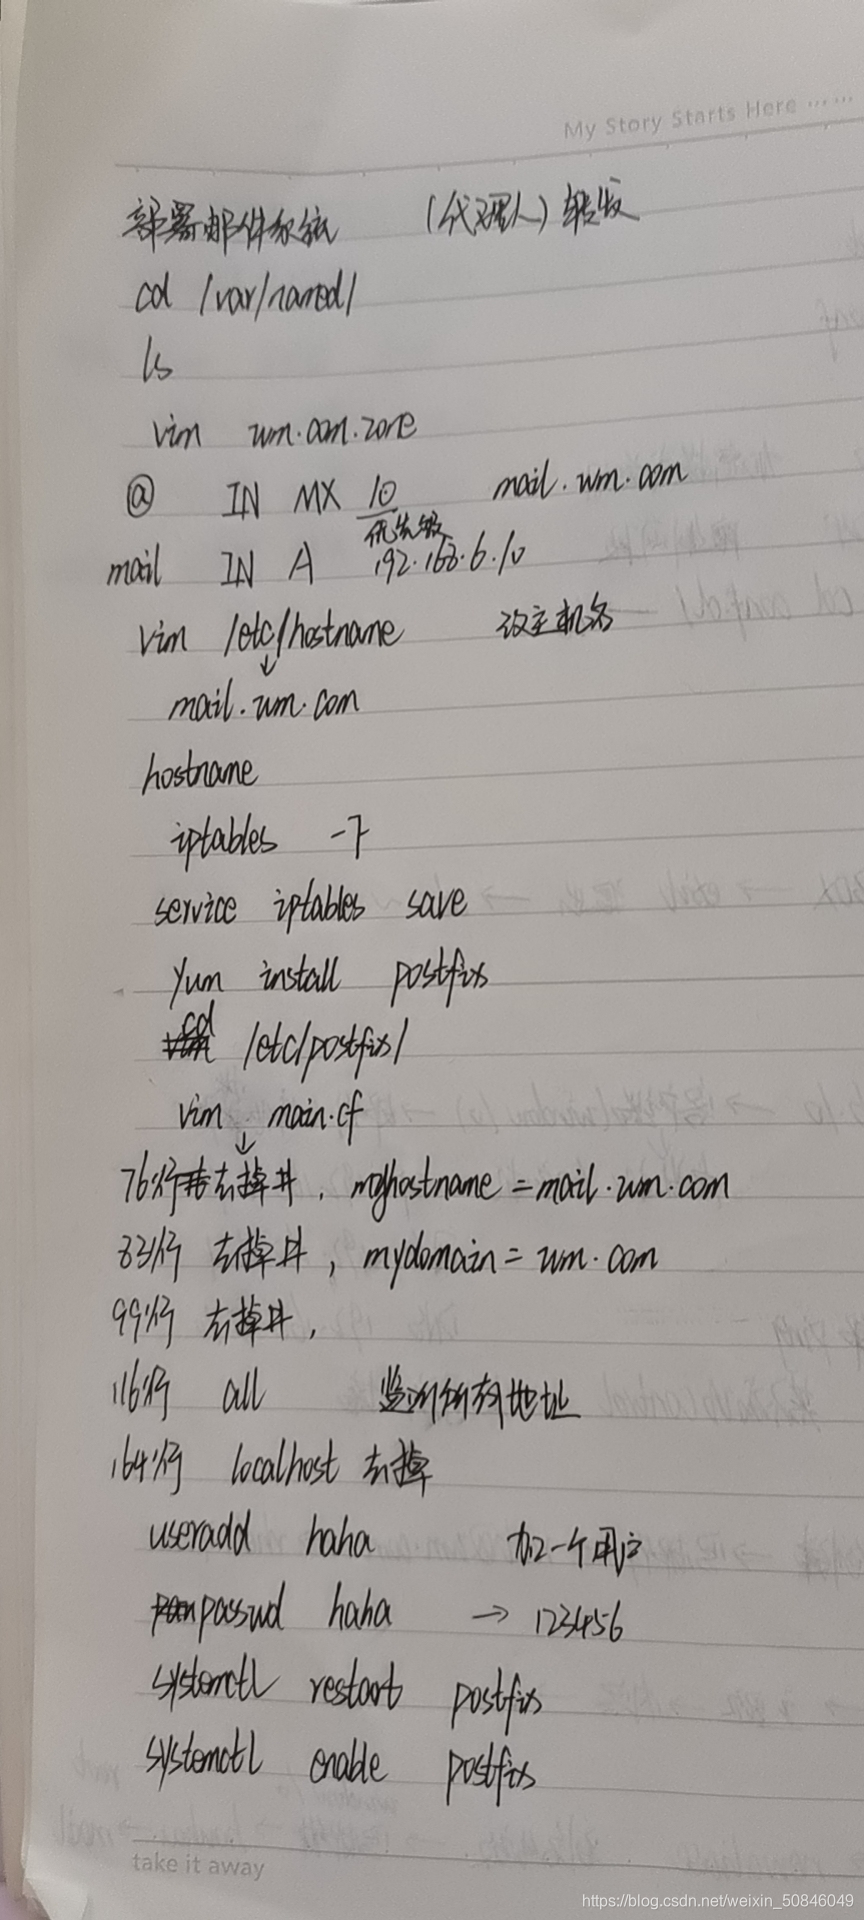 My Story Starts Here ……
部署邮件系统 (代理人)转发
cd /var/named/
ls
vim wm.com.zone
@ IN MX 10 mail.wm.com
优先级
mail IN A 192.168.6.10
vim /etc/hostname 改主机名
↓
mail.wm.com
hostname
iptables -F
service iptables save
yum install postfix
cd /etc/postfix/
vim main.cf
↓
76行去掉井, myhostname = mail.wm.com
83行 去掉井, mydomain = wm.com
99行 去掉井,
116行 all 监听所有地址
164行 localhost 去掉
useradd haha 加一个用户
passwd haha → 123456
systemctl restart postfix
systemctl enable postfix
take it away
https://blog.csdn.net/weixin_50846049